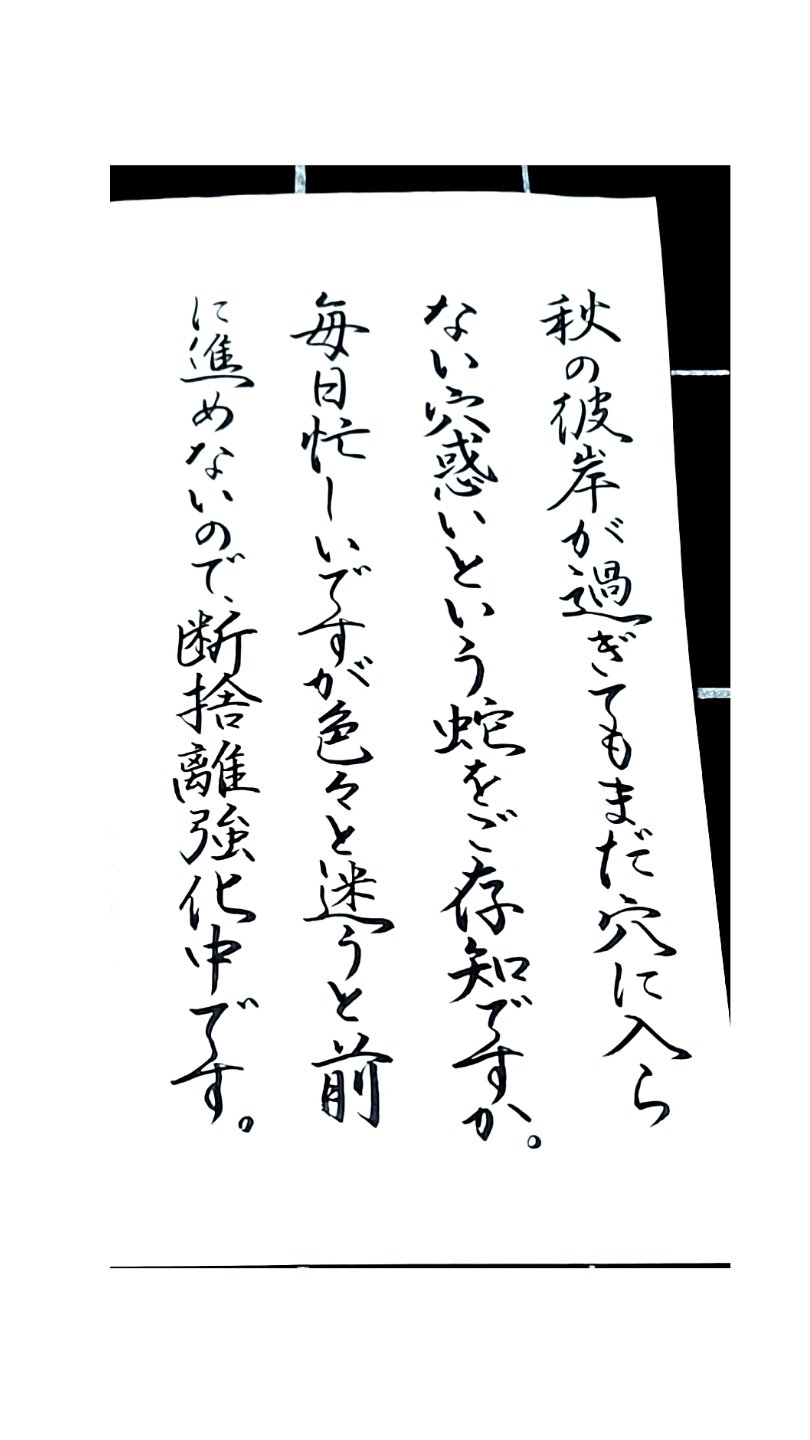 秋の彼岸が過ぎてもまだ穴に入ら
ない穴惑いという蛇をご存知ですか。
毎日忙しいですが色々と迷うと前
に進めないので、断捨離強化中です。